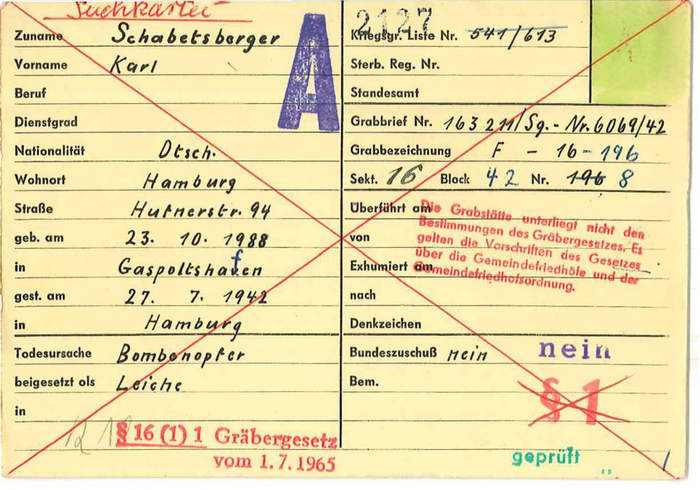 Suchkartei
Zuname Schabetsberger
Vorname Karl
Beruf
Dienstgrad
Nationalität Dtsch.
Wohnort Hamburg
Straße Hufnerstr. 94
geb. am 23. 10. 1988
in Gaspoltshofen
gest. am 27. 7. 1942
in Hamburg
Todesursache Bombenopfer
beigesetzt als Leiche
in
§ 16 (1) 1 Gräbergesetz
vom 1.7.1965
A
2127
Kriegsgr. Liste Nr. 541/613
Sterb. Reg. Nr.
Standesamt
Grabbrief Nr. 163 211/Sg.-Nr. 6069/42
Grabbezeichnung F - 16 - 196
Sekt. 16 Block 42 Nr. 196 8
Überführt am
von
Exhumiert am
nach
Denkzeichen
Die Grabstätte unterliegt nicht den
Bestimmungen des Gräbergesetzes. Es
gelten die Vorschriften des Gesetzes
über die Gemeindefriedhöfe und der
Gemeindefriedhofsordnung.
Bundeszuschuß nein nein
Bem.
§ 1
geprüft